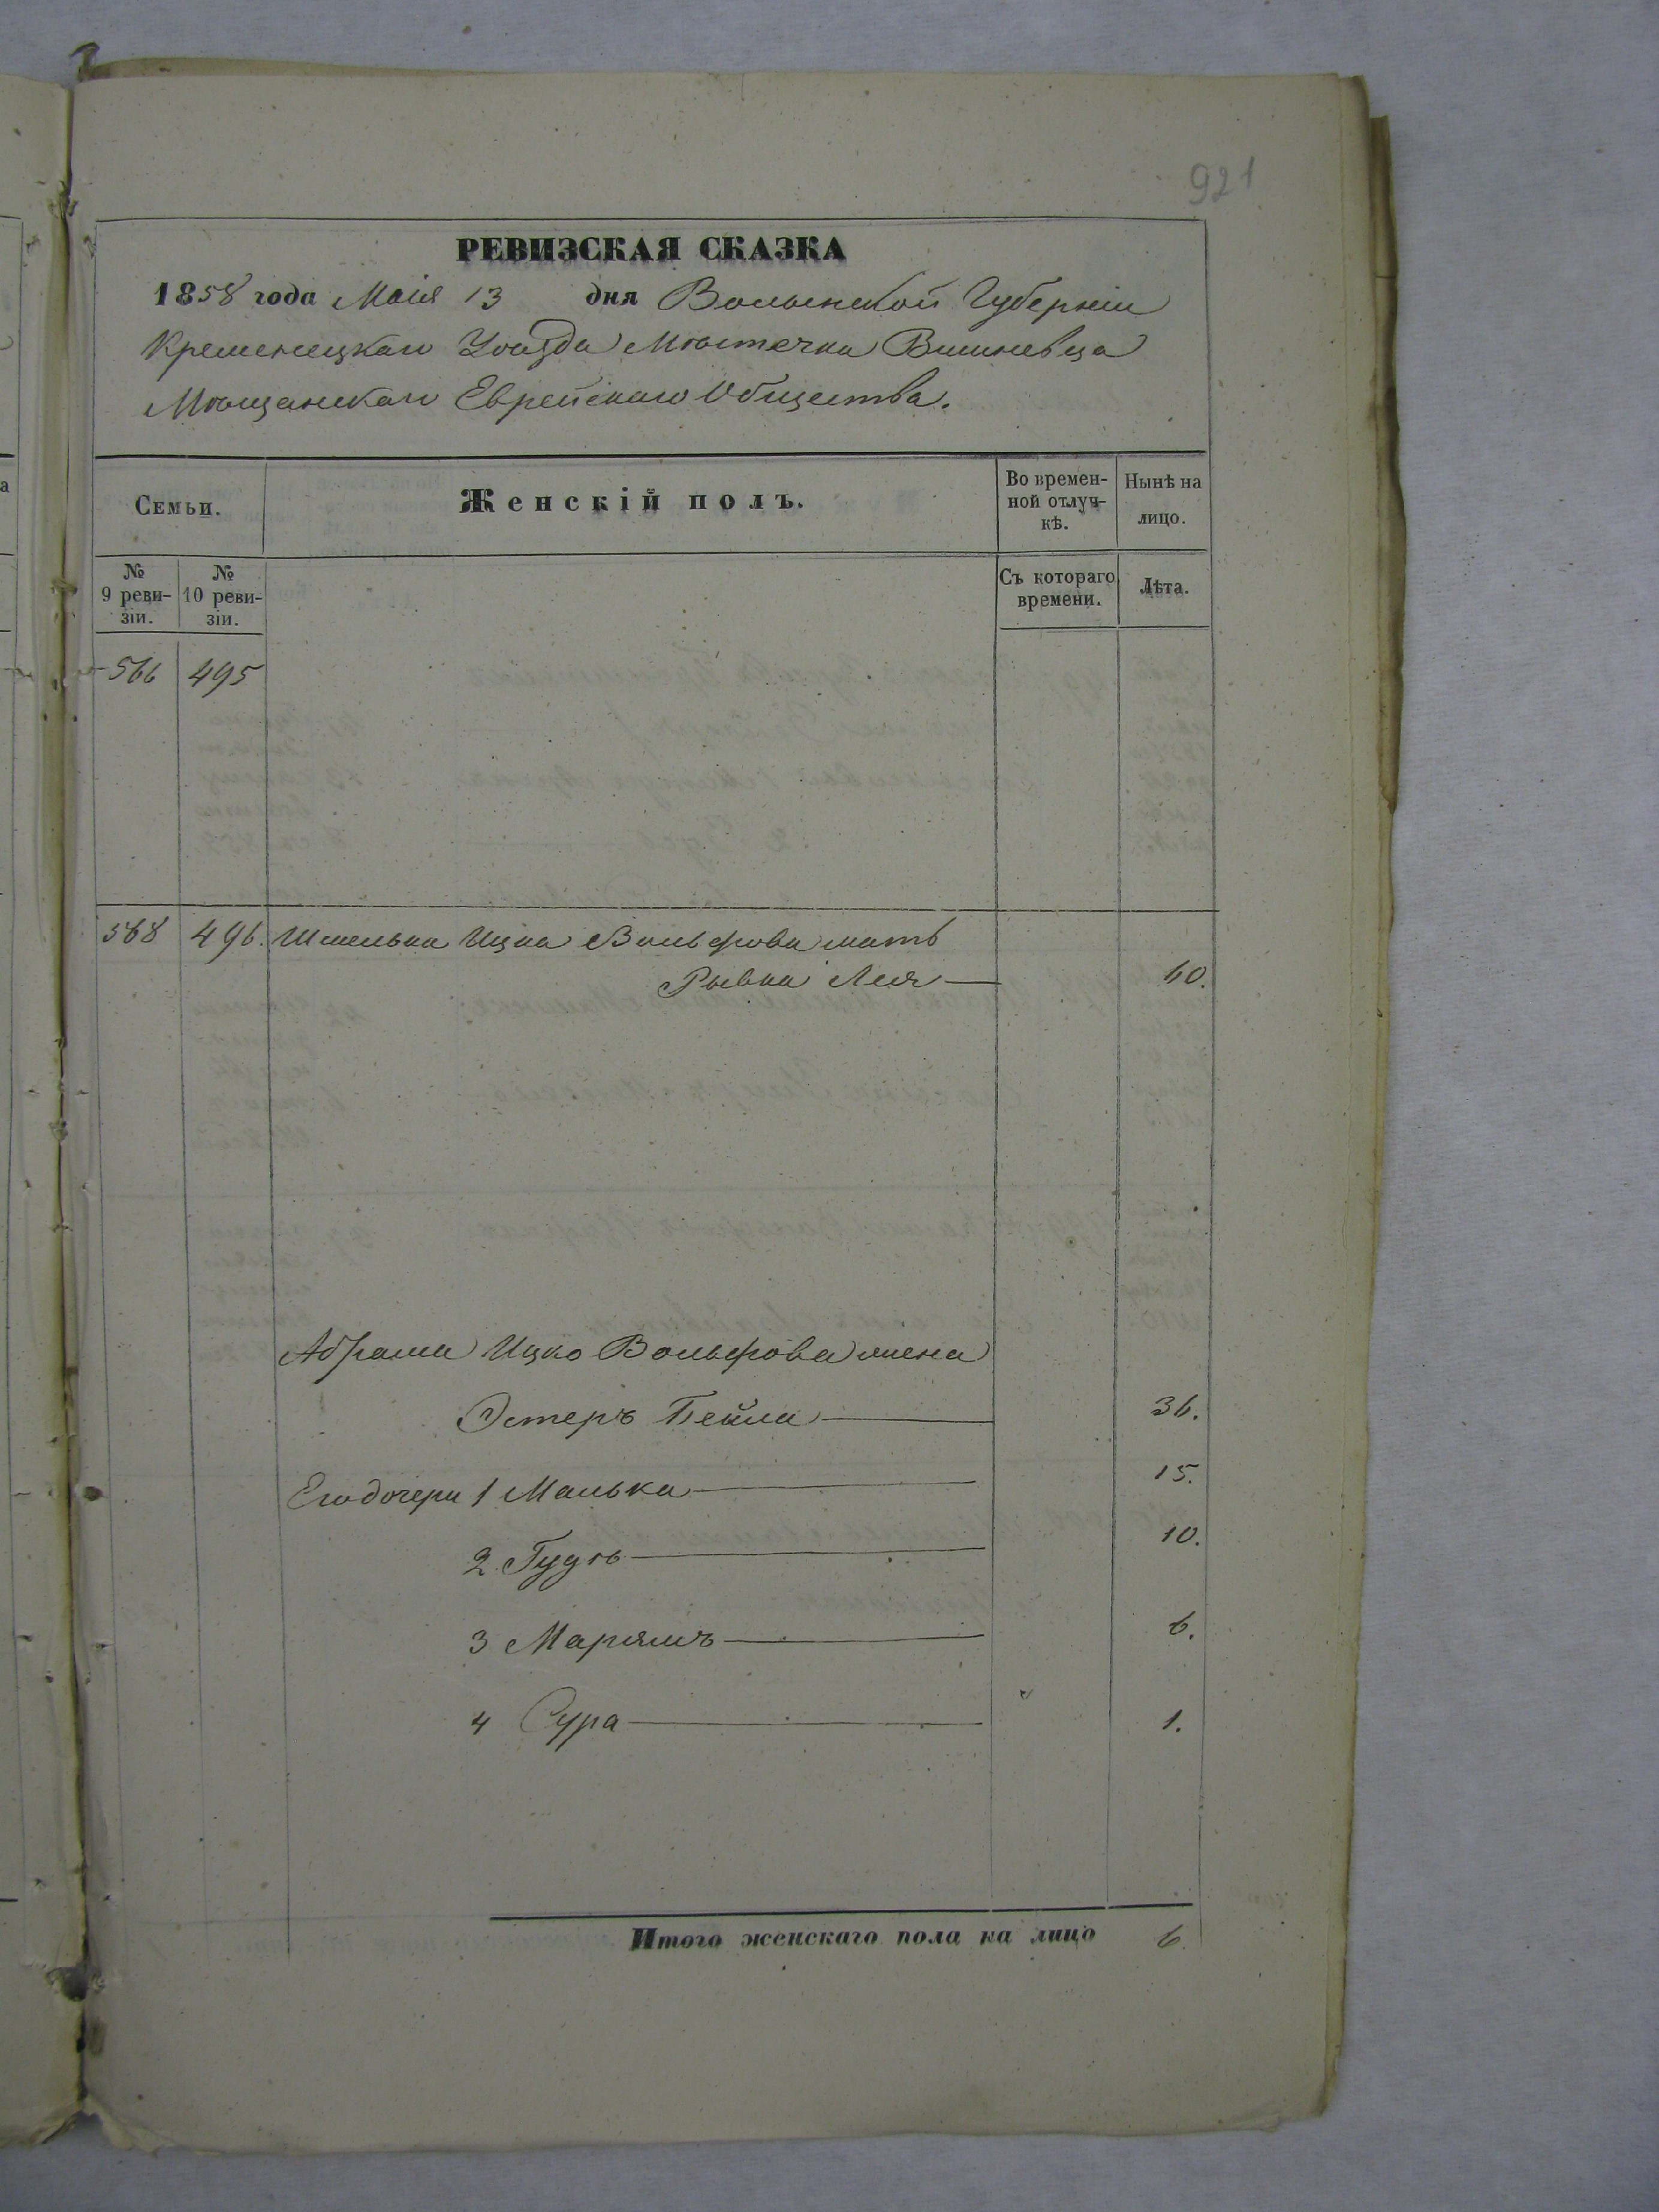 921
РЕВИЗСКАЯ СКАЗКА
1858 года Маія 13 дня Волынской Губерніи
Кременецкаго Уѣзда Мѣстечка Вишневца
Мѣщанскаго Еврейскаго Общества.
Семьи.
Женскій полъ.
Во времен-
ной отлуч-
кѣ.
Нынѣ на
лицо.
№
9 реви-
зіи.
№
10 реви-
зіи.
Съ котораго
времени.
Лѣта.
566 495
568 496. Шмелька Ицка Вольфова мать
Рывка Лея 60.
Абрама Ицко Вольфова жена
Эстеръ Бейла 36.
Его дочери 1 Малька 15.
2 Гудя 10.
3 Марямъ 6.
4 Сура 1.
Итого женскаго пола на лицо 6